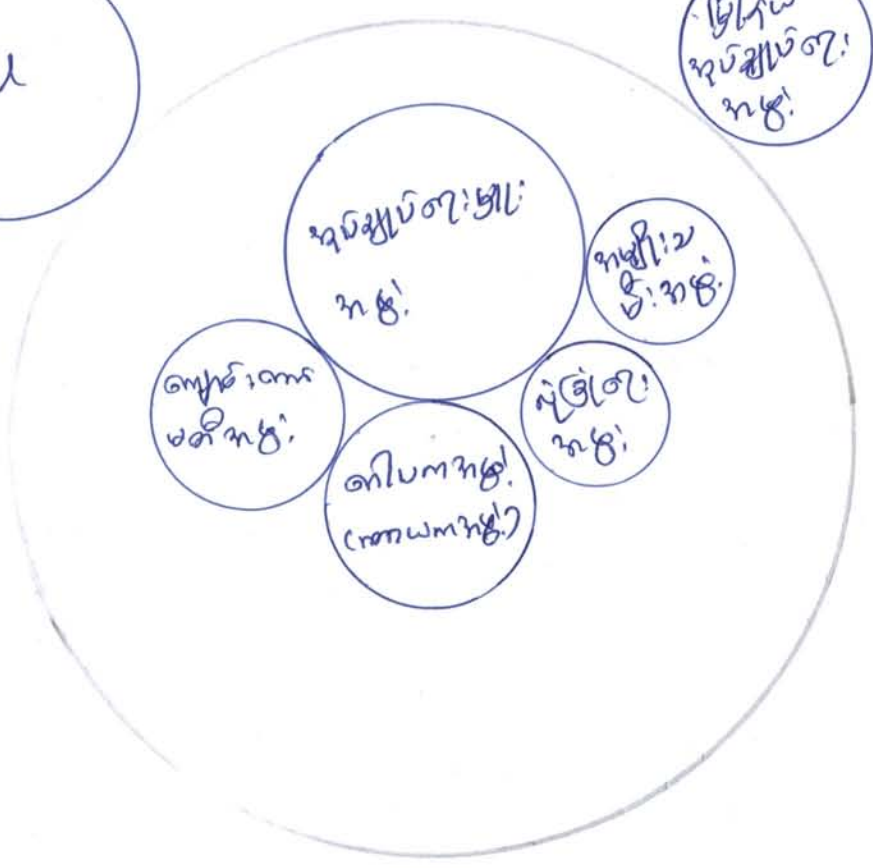 မြို့နယ်
အုပ်ချုပ်ရေး
အဖွဲ့
အုပ်ချုပ်ရေးမှူး
အဖွဲ့
အမျိုးသ
မီးအဖွဲ့
ကျောင်းကော်
မတီအဖွဲ့
လုံခြုံရေး
အဖွဲ့
ဂေါပကအဖွဲ့
(ကာယကအဖွဲ့)